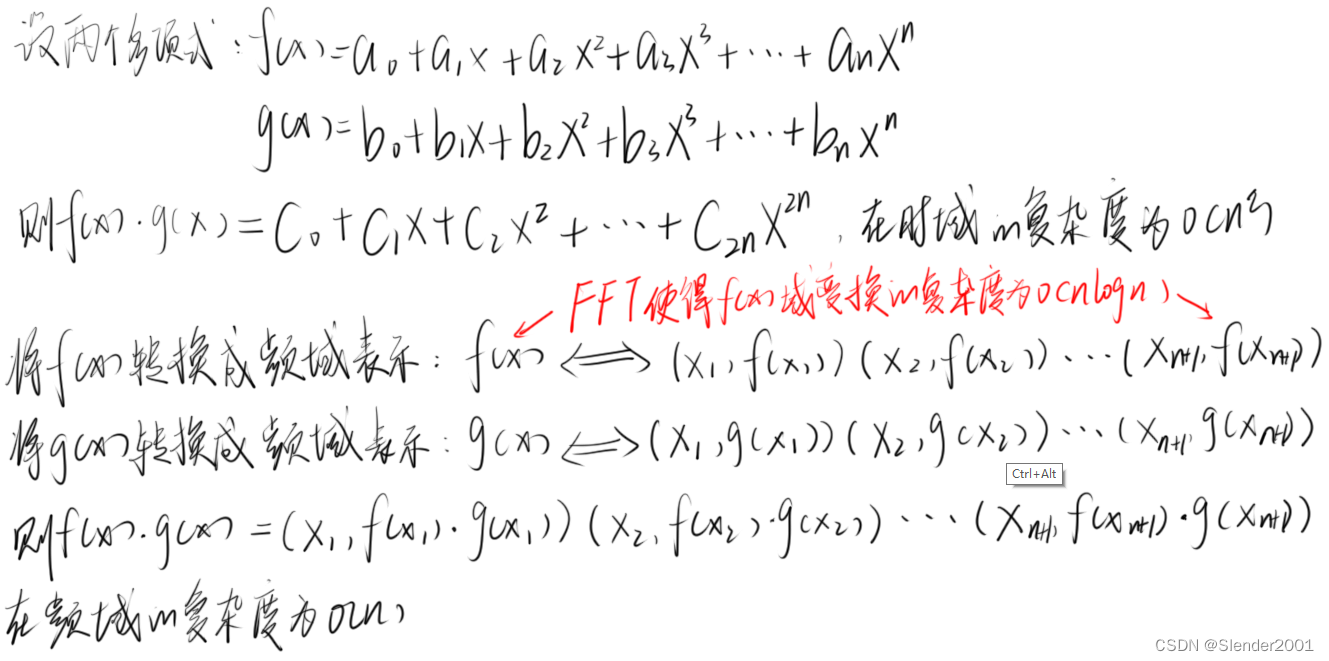 设两个多项式:f(x)=a₀+a₁x+a₂x²+a₃x³+⋯+aₙxⁿ
g(x)=b₀+b₁x+b₂x²+b₃x³+⋯+bₙxⁿ
则f(x)·g(x)=C₀+C₁x+C₂x²+⋯+C₂ₙx²ⁿ,在时域的复杂度为O(n²)
FFT使得f(x)域变换的复杂度为O(nlogn)
将f(x)转换成频域表示:f(x)⟺(x₁,f(x₁))(x₂,f(x₂))⋯(xₙ₊₁,f(xₙ₊₁))
将g(x)转换成频域表示:g(x)⟺(x₁,g(x₁))(x₂,g(x₂))⋯(xₙ₊₁,g(xₙ₊₁))
Ctrl+Alt
则f(x)·g(x)=(x₁,f(x₁)·g(x₁))(x₂,f(x₂)·g(x₂))⋯(xₙ₊₁,f(xₙ₊₁)·g(xₙ₊₁))
在频域的复杂度为O(n)
CSDN @Slender2001